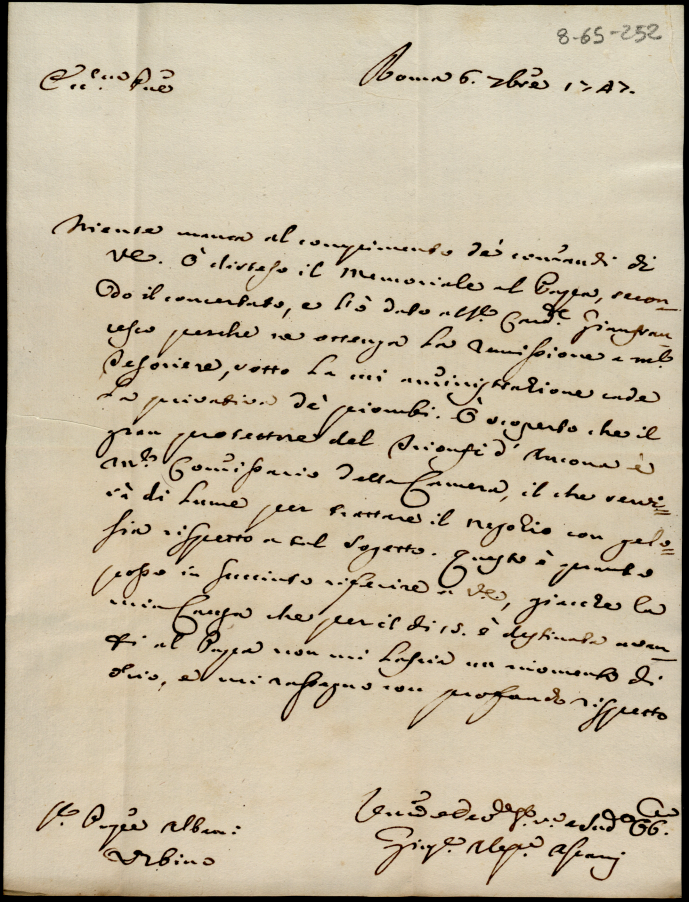 8-65-252
Roma 6. 7bre 1747.
Niente manca al compimento de' comandi di
VE. Ò disteso il Memoriale al Papa, secon-
do il concertato, e l'ò dato all' Card. Gianfran-
cesco perche ne ottenga la remissione a m.r
Tesoriere, sotto la cui amministrazione cade
la privativa de' piombi. Ò scoperto che il
gran protettore del Trionfi d' Ancona è
m.r Comissario della Camera, il che servi=
rà di lume per trattare il negozio con gelo=
sia rispetto a tal sogetto. Questo è quanto
posso in succinto riferire a VE, giacche la
mia Causa che per il di 15. è destinata avan-
ti al Papa non mi lascia un momento di
ozio, e mi rassegno con profondo rispetto
Albani
Urbino